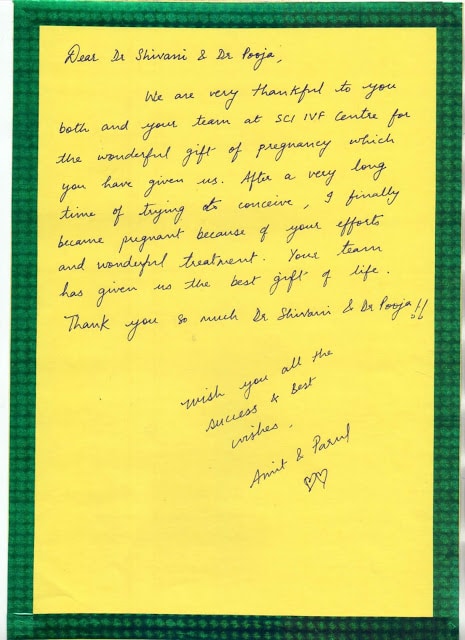 Dear Dr Shivani & Dr Pooja,
We are very thankful to you
both and your team at SCI IVF Centre for
the wonderful gift of pregnancy which
you have given us. After a very long
time of trying to conceive, I finally
became pregnant because of your efforts
and wonderful treatment. Your team
has given us the best gift of life.
Thank you so much Dr Shivani & Dr Pooja!!
Wish you all the
success & Best
wishes.
Amit & Parul